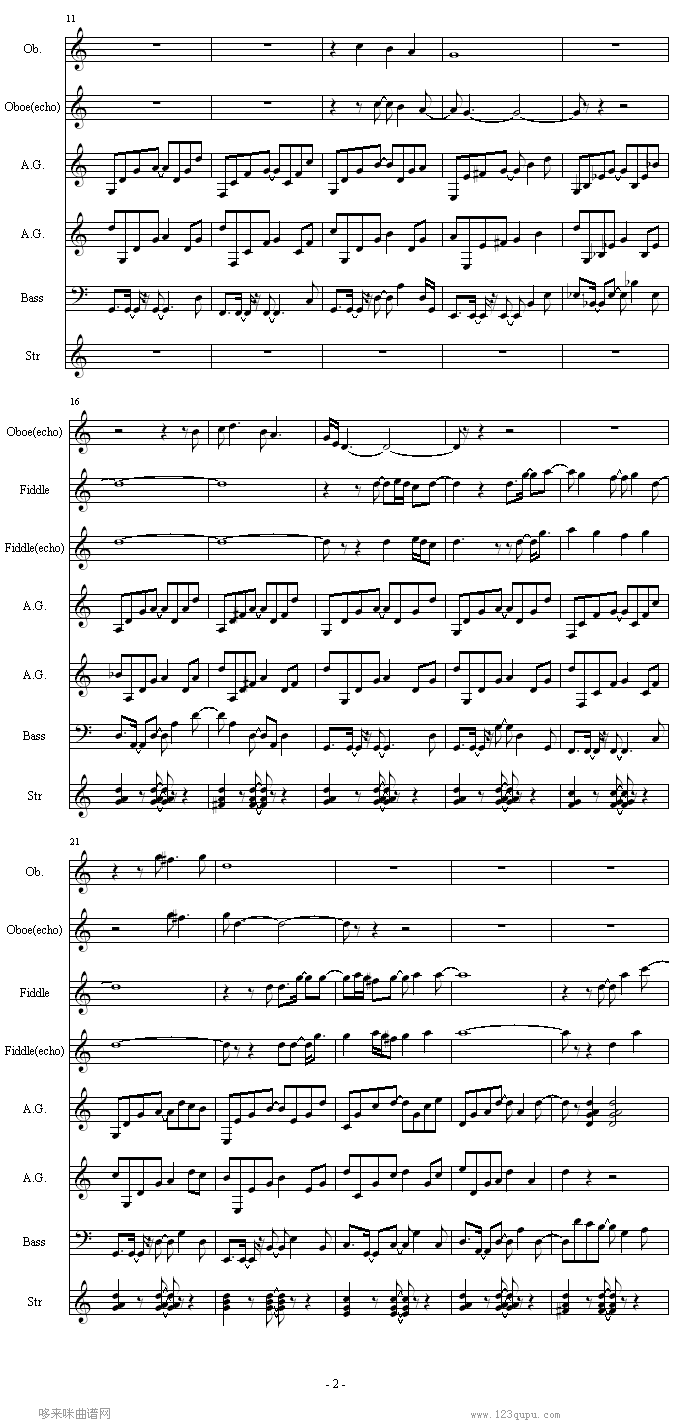 11
Ob.
Oboe(echo)
A.G.
A.G.
Bass
Str
16
Oboe(echo)
Fiddle
Fiddle(echo)
A.G.
A.G.
Bass
Str
21
Ob.
Oboe(echo)
Fiddle
Fiddle(echo)
A.G.
A.G.
Bass
Str
- 2 -
哆来咪曲谱网
www.123qupu.com